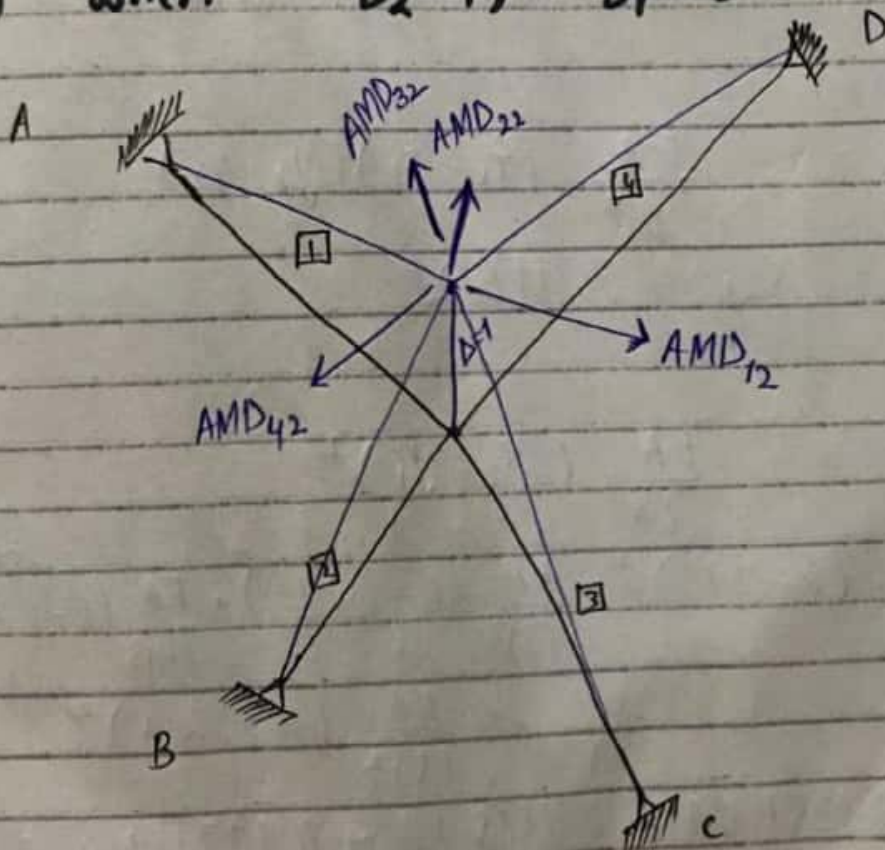 D
A
AMD32
AMD22
4
1
D=1
AMD12
AMD42
3
B
C